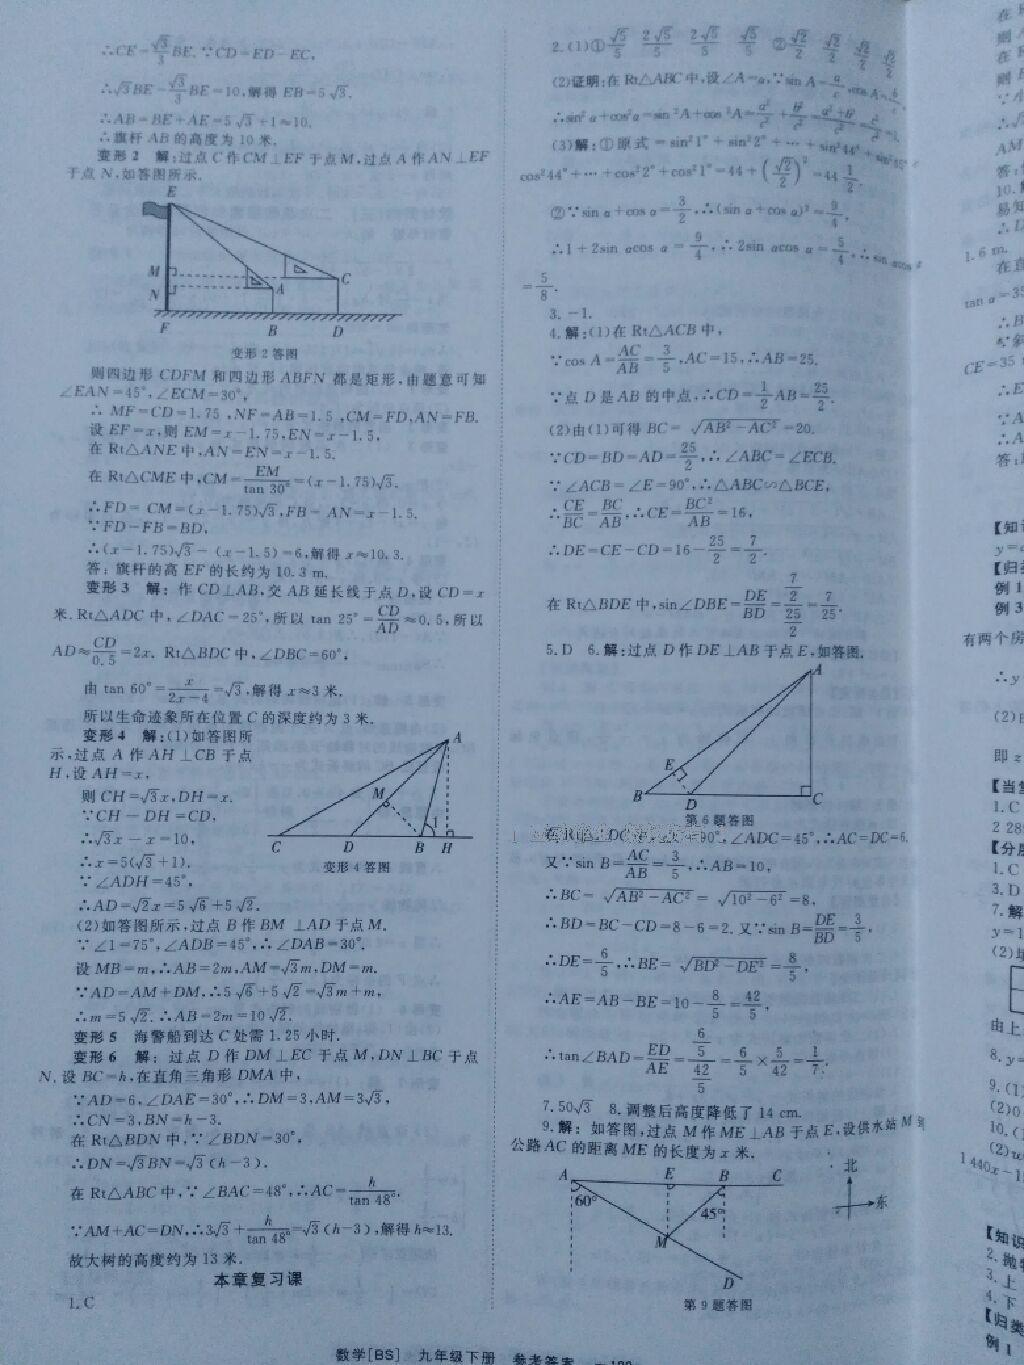 ∴CE=√3/3 BE.∵CD=ED-EC,
∴√3BE-√3/3 BE=10,解得 EB=5√3.
∴AB=BE+AE=5√3+1≈10.
∴旗杆 AB 的高度为 10 米.
变形 2 解:过点 C 作 CM⊥EF 于点 M,过点 A 作 AN⊥EF
于点 N,如答图所示.
E
M
N
A
C
F
B
D
变形 2 答图
则四边形 CDFM 和四边形 ABFN 都是矩形,由题意可知
∠EAN=45°,∠ECM=30°,
∴ MF=CD=1.75 ,NF=AB=1.5 ,CM=FD,AN=FB.
设 EF=x,则 EM=x-1.75,EN=x-1.5,
在 Rt△ANE 中,AN=EN=x-1.5.
在 Rt△CME 中,CM=EM/tan 30°=(x-1.75)√3.
∴FD= CM=(x-1.75)√3,FB= AN=x-1.5.
∵FD-FB=BD,
∴(x-1.75)√3-(x-1.5)=6,解得 x≈10.3.
答:旗杆的高 EF 的长约为 10.3 m.
变形 3 解:作 CD⊥AB,交 AB 延长线于点 D,设 CD=x
米. Rt△ADC 中,∠DAC=25°,所以 tan 25°=CD/AD≈0.5,所以
AD≈CD/0.5=2x. Rt△BDC 中,∠DBC=60°,
由 tan 60°=x/(2x-4)=√3,解得 x≈3 米.
所以生命迹象所在位置 C 的深度约为 3 米.
变形 4 解:(1)如答图所
示,过点 A 作 AH⊥CB 于点
H,设 AH=x,
则 CH=√3x,DH=x.
∵CH-DH=CD,
∴√3x-x=10,
∴x=5(√3+1).
∵∠ADH=45°,
∴AD=√2x=5√6+5√2.
A
M
1
C
D
B
H
变形 4 答图
(2)如答图所示,过点 B 作 BM⊥AD 于点 M.
∵∠1=75°,∠ADB=45°,∴∠DAB=30°.
设 MB=m,∴AB=2m,AM=√3m,DM=m.
∵AD=AM+DM,∴5√6+5√2=√3m+m,
∴m=5√2.∴AB=2m=10√2.
变形 5 海警船到达 C 处需 1.25 小时.
变形 6 解:过点 D 作 DM⊥EC 于点 M,DN⊥BC 于点
N,设 BC=h,在直角三角形 DMA 中,
∵AD=6,∠DAE=30°,∴DM=3,AM=3√3,
∴CN=3,BN=h-3.
在 Rt△BDN 中,∵∠BDN=30°,
∴DN=√3BN=√3(h-3),
在 Rt△ABC 中,∵∠BAC=48°,∴AC=h/tan 48°.
∵AM+AC=DN,∴3√3+h/tan 48°=√3(h-3),解得 h≈13.
故大树的高度约为 13 米.
本章复习课
1. C
2. (1)①√5/5 2√5/5 2√5/5 √5/5 ②√2/2 √2/2 √2/2 √2/2
(2)证明:在 Rt△ABC 中,设∠A=α,∵sin A=a/c,cos A=b/c,
∴sin²α+cos²α=sin²A+cos²A=a²/c²+b²/c²=(a²+b²)/c²=c²/c²=1.
(3)解:①原式=sin²1°+sin²2°+…+sin²44°+sin²45°+
cos²44°+…+cos²2°+cos²1°=44+(√2/2)²=44 1/2.
②∵sin α+cos α=3/2,∴(sin α+cos α)²=9/4,
∴1+2sin αcos α=9/4,∴2sin αcos α=5/4,∴sin αcos α
=5/8.
3. -1.
4. 解:(1)在 Rt△ACB 中,
∵cos A=AC/AB=3/5,AC=15,∴AB=25.
∵点 D 是 AB 的中点,∴CD=1/2 AB=25/2.
(2)由(1)可得 BC=√(AB²-AC²)=20.
∵CD=BD=AD=25/2,∴∠ABC=∠ECB.
∵∠ACB=∠E=90°,∴△ABC∽△BCE,
∴CE/BC=BC/AB,∴CE=BC²/AB=16,
∴DE=CE-CD=16-25/2=7/2.
在 Rt△BDE 中,sin∠DBE=DE/BD=(7/2)/(25/2)=7/25.
5. D 6. 解:过点 D 作 DE⊥AB 于点 E,如答图.
A
E
B
D
C
第 6 题答图
∠ADC=45°,∴AC=DC=6.
又∵sin B=AC/AB=3/5,∴AB=10,
∴BC=√(AB²-AC²)=√(10²-6²)=8,
∴BD=BC-CD=8-6=2. 又∵sin B=DE/BD=3/5,
∴DE=6/5,∴BE=√(BD²-DE²)=8/5,
∴AE=AB-BE=10-8/5=42/5,
∴tan∠BAD=ED/AE=(6/5)/(42/5)=6/5×5/42=1/7.
7. 50√3 8. 调整后高度降低了 14 cm.
9. 解:如答图,过点 M 作 ME⊥AB 于点 E,设供水站 M 到
公路 AC 的距离 ME 的长度为 x 米.
A
E
B
C
60°
45°
M
D
北
东
第 9 题答图
数学[BS] 九年级下册 参考答案
1.6 m.
在直
tan α=35
CE=35
答:
【知识
y=
【归类
例 1
例 3
有两个房
∴y
(2)由
即 z
【当堂
1. C
2 28
【分层
1. C
3. D
7. 解
y=1
(2)
由上
8. y=
9. (1)
(2)0
10. (
(2)w
1 440x-1
【知识
2. 抛物
3. 上
4. 下
【归类
例 1